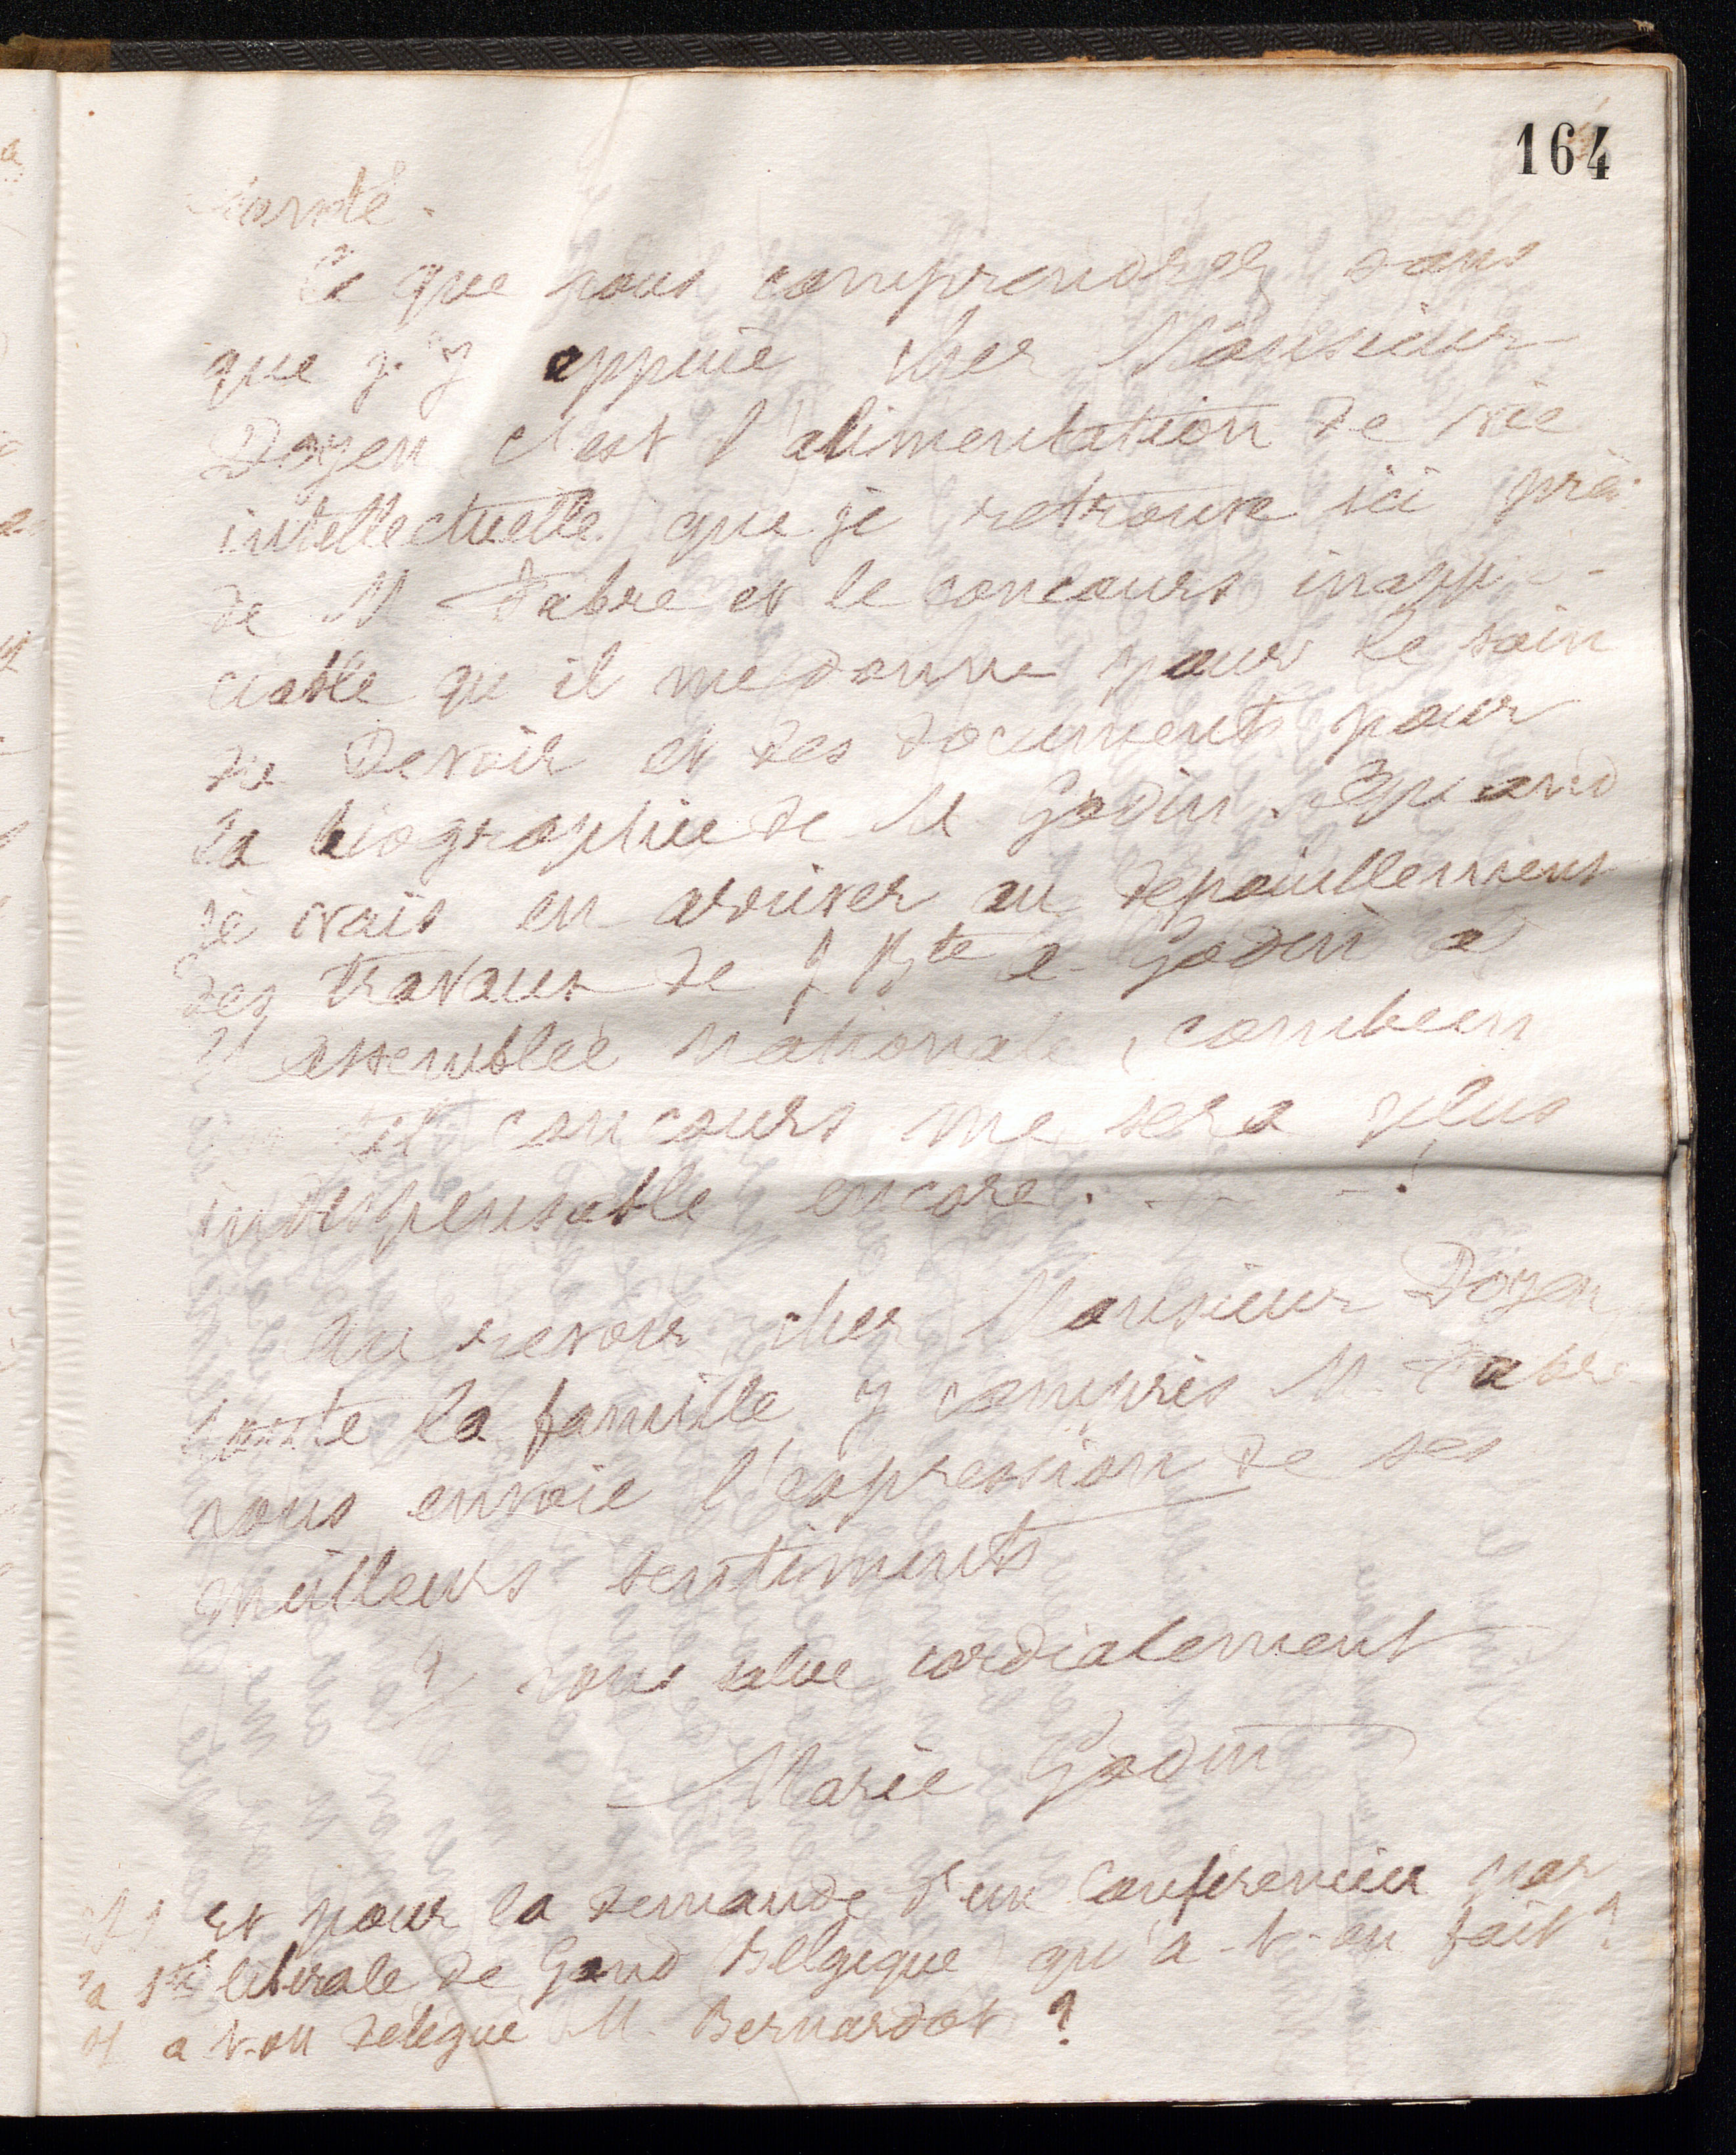 164
santé.
Ce que vous comprendrez sans
que j'y appuie cher Monsieur
Doyen c'est l'alimentation de vie
intellectuelle que je retrouve ici près
de M Fabre et le concours inappré-
ciable qu'il me donne pour le soin
du Devoir et des documents pour
la biographie de M Godin. Quand
je vais en arriver au dépouillement
des travaux de J Bte A. Godin à
l'assemblée nationale, combien
concours me sera plus
indispensable encore. - - - !
Au revoir cher Monsieur Doyen
toute la famille y compris M. Fabre
vous envoie l'expression de ses
meilleurs sentiments
Je vous salue cordialement
Marie Godin
PS Et pour la demande d'un Conférencier par
la Sté libérale de Gand Belgique qu'a-t-on fait?
Y a t-on délégué M. Bernardot ?